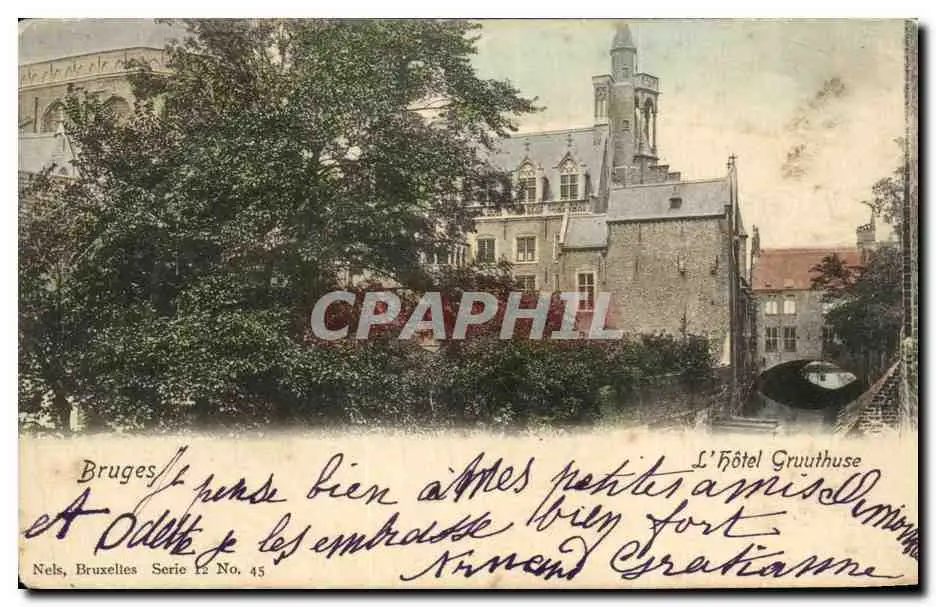 CPAPHIL
Bruges
L'Hôtel Gruuthuse
Je pense bien à Mes petites amis Simone
et Odette je les embrasse bien fort
Armand Gratianne
Nels, Bruxelles Serie 12 No. 45